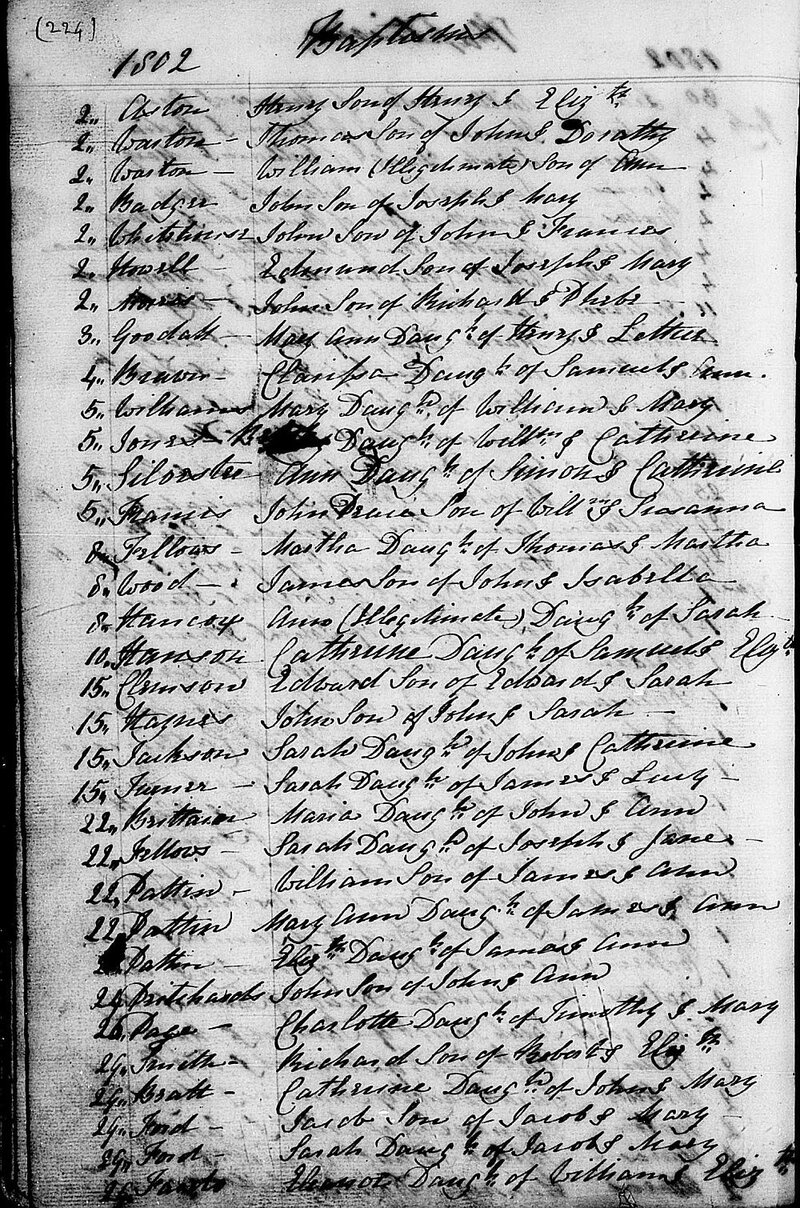 (224)
Baptisms
1802
2,, Aston Henry Son of Henry & Eliz.th
2,, Warton - Thomas Son of John & Dorathy
2,, Warton - William (Illigitimate) Son of Ann
2,, Badger John Son of Joseph & Mary
2,, Whitehouse John Son of John & Frances
2,, Howell - Edmund Son of Joseph & Mary
2,, Morris - John Son of Richard & Phebe
3,, Goodall - Mary Ann Daug.h of Henry & Lettice
4,, Brown - Clarissa Daug.h of Samuel & Ann.
5,, Williams Mary Daug.h of William & Mary
5,, Jones - Daug.h of Will.m & Catherine
5,, Silvester Ann Daug.h of Simon & Catherine
5,, Francis John Son of Will.m & Susanna
8,, Fellows - Martha Daug.h of Thomas & Martha
8,, Wood - James Son of John & Isabella
8,, Hancox Ann (Illigitimate) Daug.h of Sarah
10,, Hanson Catherine Daug.h of Samuel & Eliz.th
15,, Clemson Edward Son of Edward & Sarah
15,, Haynes John Son of John & Sarah -
15,, Jackson Sarah Daug.h of John & Catherine
15,, Turner - Sarah Daug.h of James & Lucy -
22,, Brittain Maria Daug.h of John & Ann
22,, Fellows - Sarah Daug.h of Joseph & Jane -
22,, Pattin - William Son of James & Ann
22,, Pattin Mary Ann Daug.h of James & Ann
Pattin - Eliz.th Daug.h of James & Ann
Pritchards John Son of John & Ann
Page - Charlotte Daug.h of Timothy & Mary
29,, Smith - Richard Son of Robert & Eliz.th
29,, Bratt - Catherine Daug.h of John & Mary
29,, Ford - Jacob Son of Jacob & Mary -
29,, Ford - Sarah Daug.h of Jacob & Mary
Eleanor Daug.h of William & Eliz.th